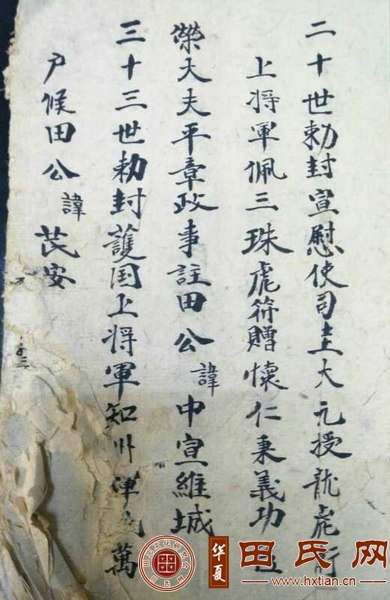 二十世勅封宣慰使司大元授龍虎
上将軍佩三珠虎符贈懷仁秉義功
榮大夫平章政事註田公諱中宣維城
三十三世勅封護国上将軍知州津萬
户候田公諱茋安
华夏
田氏网
www.hxtian.cn